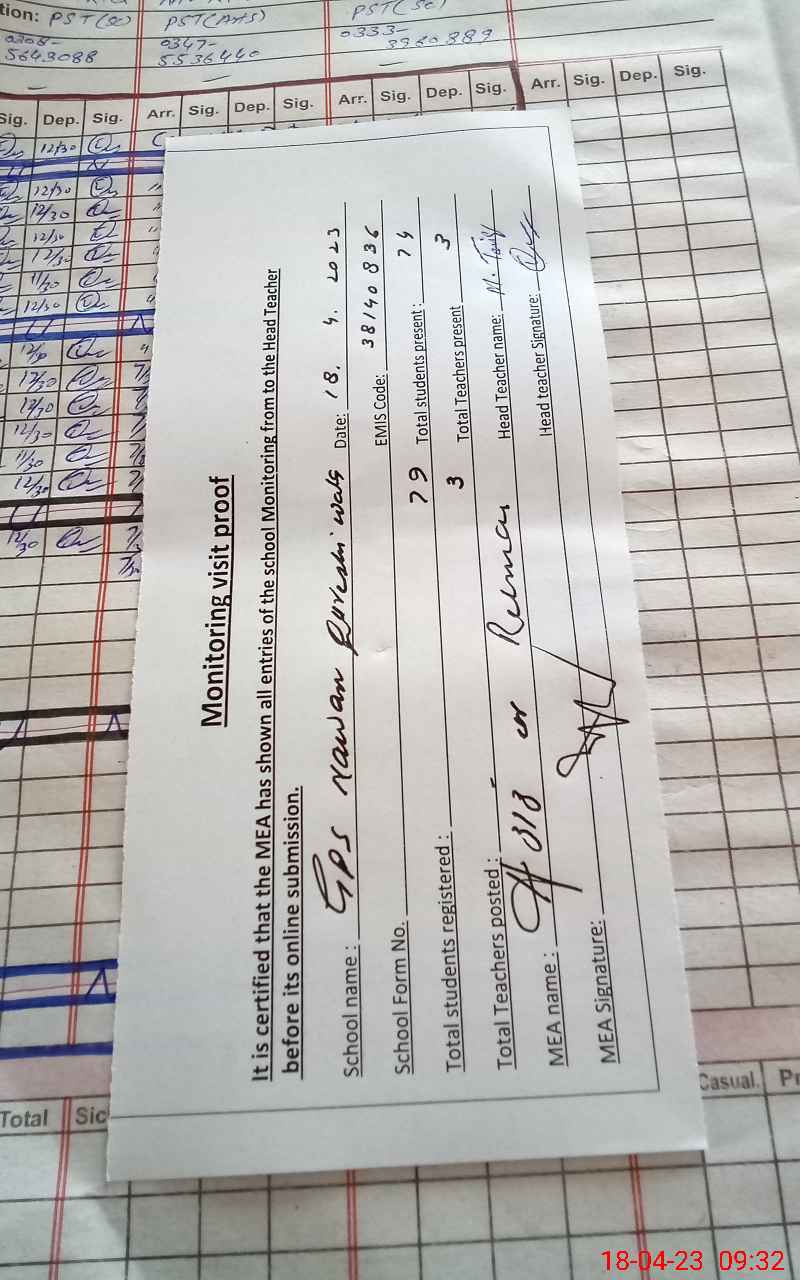 tion: PST(SC) PST(Arts) PST(SC)
0308- 0347- 0333-
5643088 5536440 8980889
Sig. Dep. Sig. Arr. Sig. Dep. Sig. Arr. Sig. Dep. Sig. Arr. Sig. Dep. Sig.
12/30
12/30
12/30
12/30
12/30
11/30
12/30
12/30
12/30
12/30
12/30
11/30
12/30
12/30
Monitoring visit proof
It is certified that the MEA has shown all entries of the school Monitoring from to the Head Teacher
before its online submission.
School name : GPS Nawan Qureshi wala Date: 18. 4. 2023
School Form No. EMIS Code: 38140836
Total students registered : 79 Total students present : 74
Total Teachers posted : 3 Total Teachers present 3
MEA name : Rehman Head Teacher name: M. Tariq
MEA Signature: Head teacher Signature:
Total Sic Casual. Pr
18-04-23 09:32